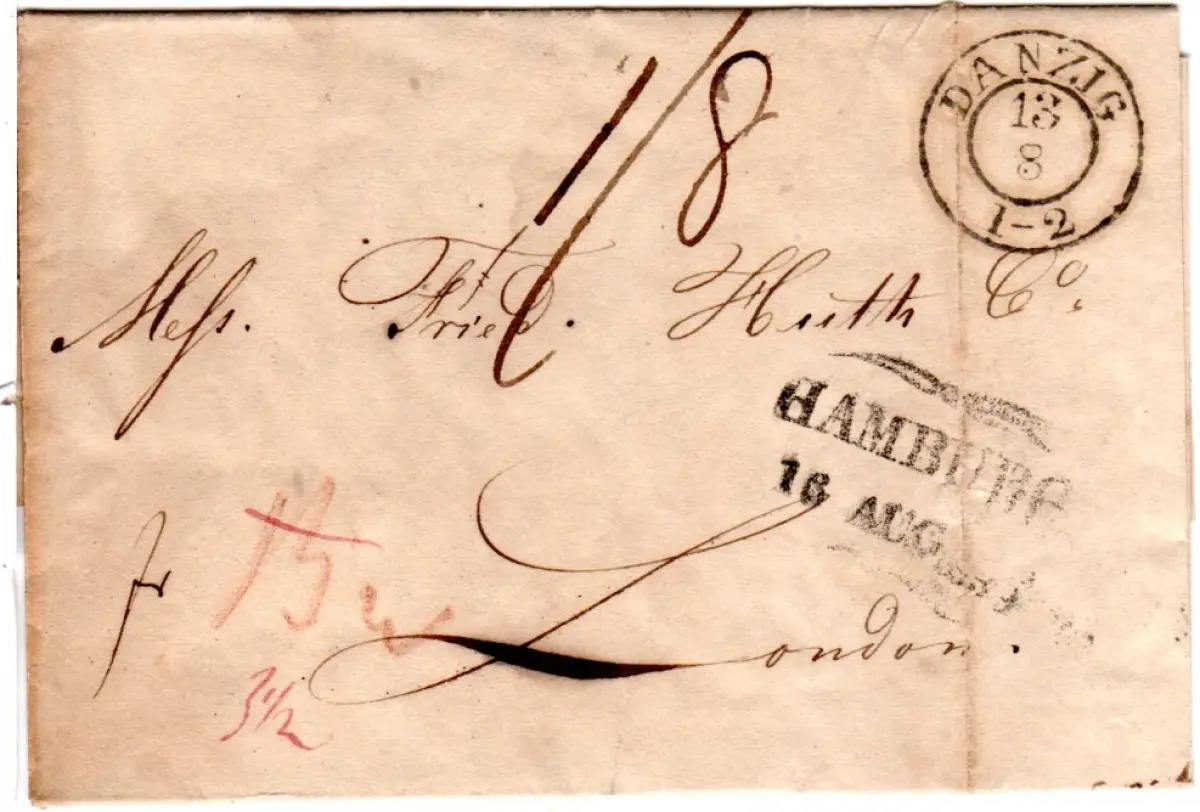 1/8
DANZIG
13
8
1-2
Mess. Fried. Huth Co.
HAMBURG
16 AUG.
fr
London.
3 1/2